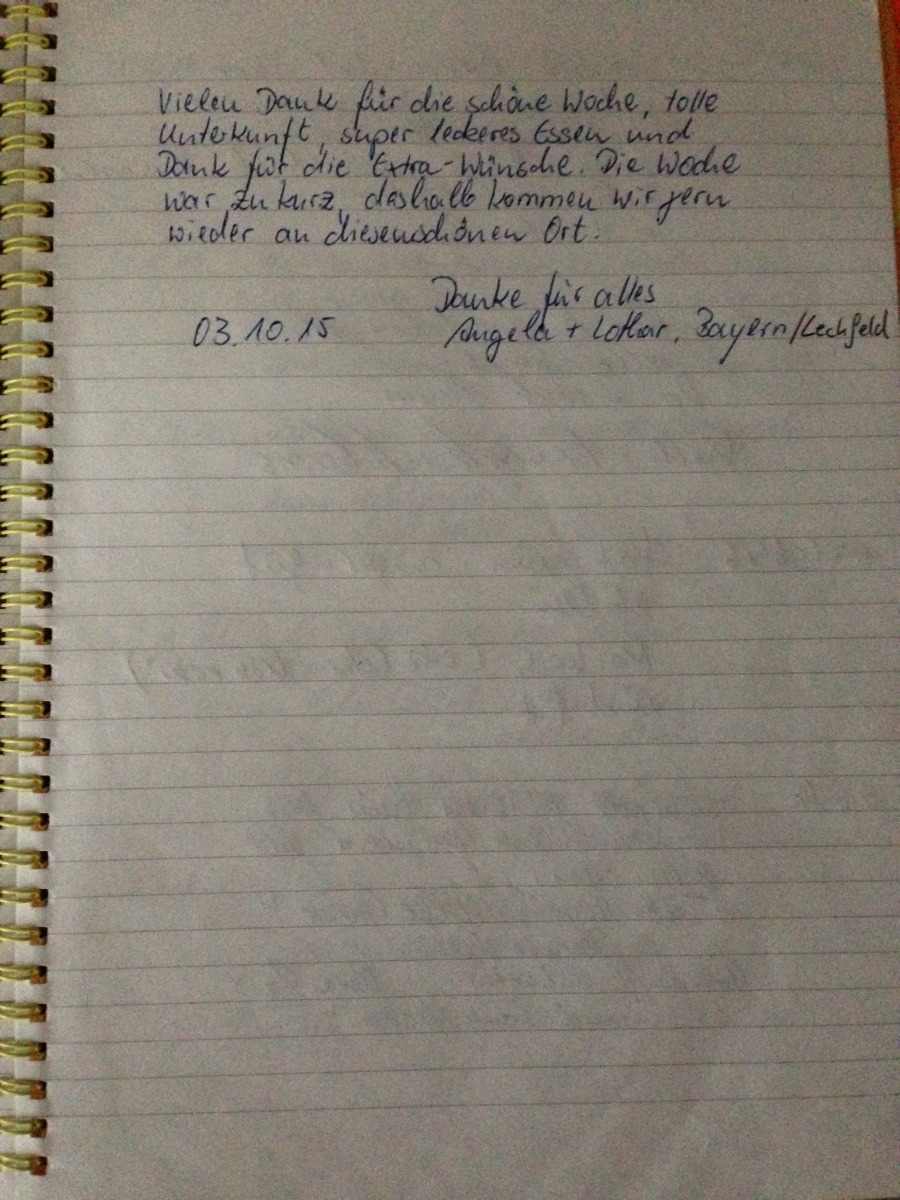 Vielen Dank für die schöne Woche, tolle
Unterkunft, super leckeres Essen und
Dank für die Extra-Wünsche. Die Woche
war zu kurz, deshalb kommen wir gern
wieder an diesenschönen Ort.
Danke für alles
03.10.15 Angela + Lothar, Bayern/Lechfeld